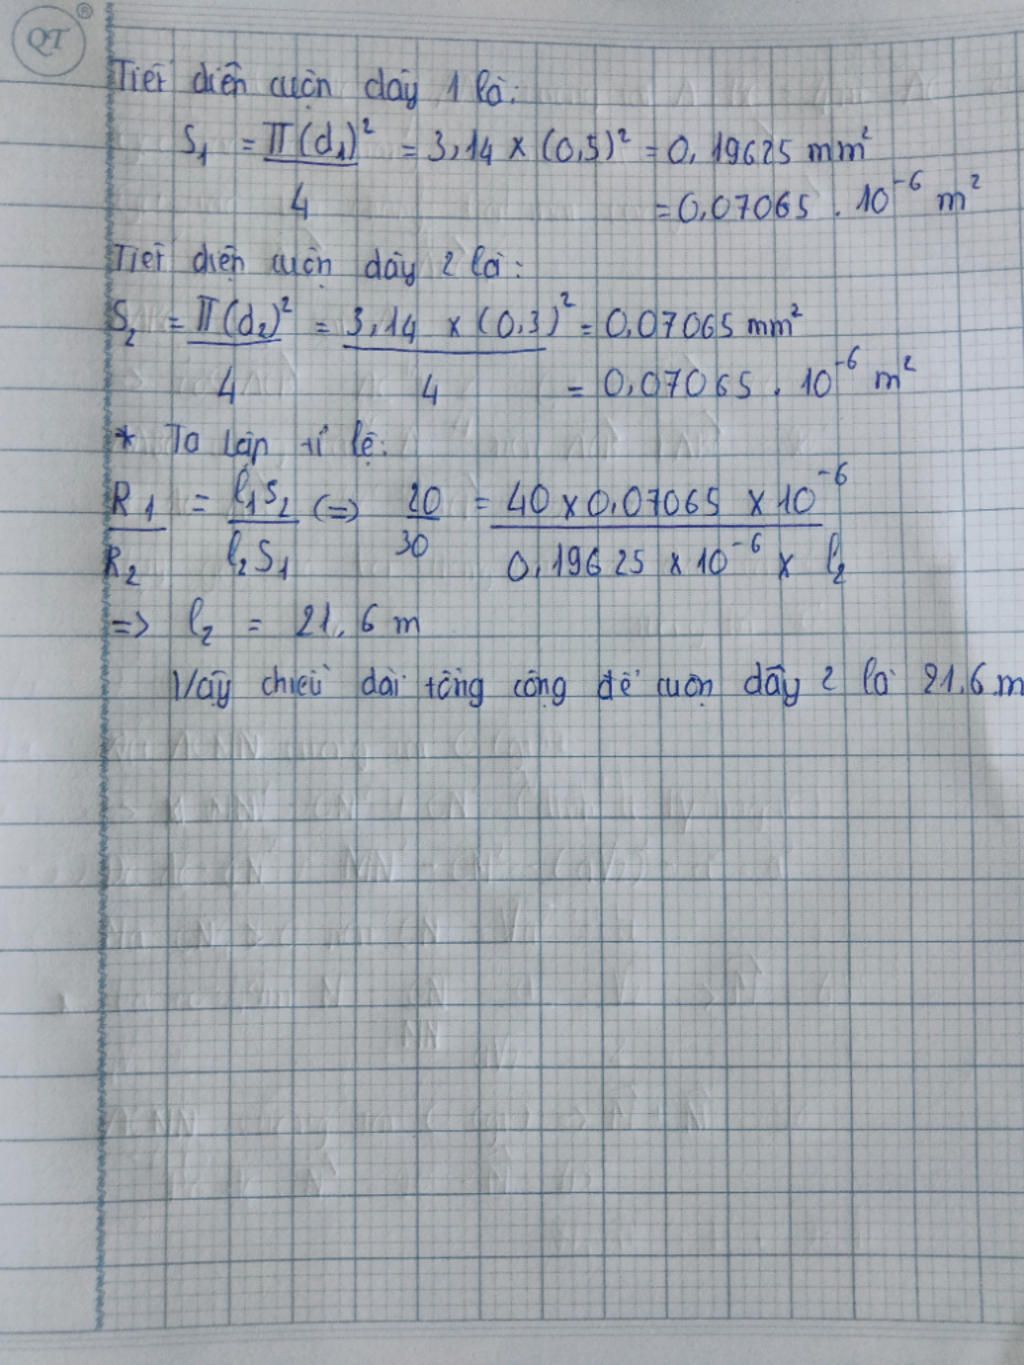 QT ®
Tiết diện cuộn dây 1 là:
S₁ = π(d₁)²/4 = 3,14 × (0,5)² = 0,19625 mm²
= 0,07065 . 10⁻⁶ m²
Tiết diện cuộn dây 2 là:
S₂ = π(d₂)²/4 = 3,14 × (0,3)²/4 = 0,07065 mm²
= 0,07065 . 10⁻⁶ m²
* Ta lập tỉ lệ:
R₁/R₂ = l₁S₂/l₂S₁ (=) 20/30 = 40 × 0,07065 × 10⁻⁶/0,19625 × 10⁻⁶ × l₂
=> l₂ = 21,6 m
Vậy chiều dài tổng cộng để cuộn dây 2 là 21,6 m